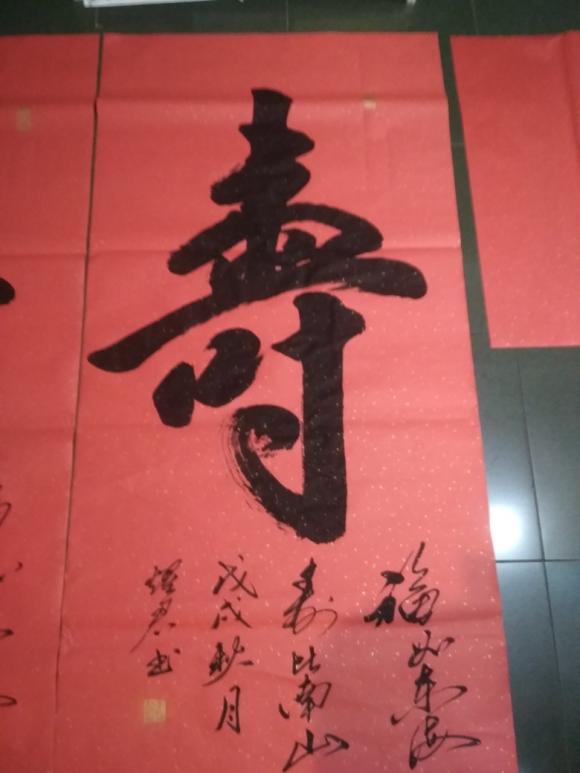 壽
福如东海
寿比南山
戊戌秋月
君书